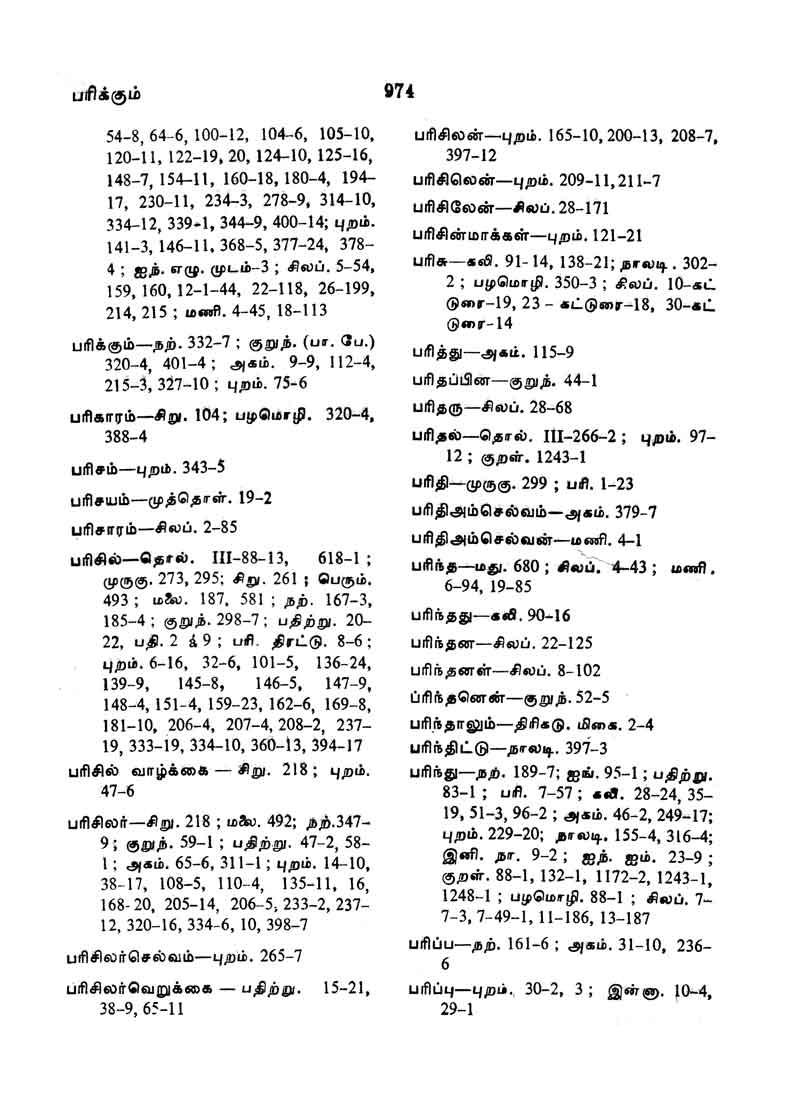 பரிக்கும்
974
54-8, 64-6, 100-12, 104-6, 105-10,
120-11, 122-19, 20, 124-10, 125-16,
148-7, 154-11, 160-18, 180-4, 194-
17, 230-11, 234-3, 278-9, 314-10,
334-12, 339-1, 344-9, 400-14; புறம்.
141-3, 146-11, 368-5, 377-24, 378-
4 ; ஐந். எழு. முடம்-3 ; சிலப். 5-54,
159, 160, 12-1-44, 22-118, 26-199,
214, 215 ; மணி. 4-45, 18-113
பரிக்கும்—நற். 332-7 ; குறுந். (பா. பே.)
320-4, 401-4 ; அகம். 9-9, 112-4,
215-3, 327-10 ; புறம். 75-6
பரிகாரம்—சிறு. 104; பழமொழி. 320-4,
388-4
பரிசம்—புறம். 343-5
பரிசயம்—முத்தொள். 19-2
பரிசாரம்—சிலப். 2-85
பரிசில்—தொல். III-88-13, 618-1 ;
முருகு. 273, 295; சிறு. 261 ; பெரும்.
493 ; மலை. 187, 581 ; நற். 167-3,
185-4 ; குறுந். 298-7 ; பதிற்று. 20-
22, பதி. 2 & 9 ; பரி. திரட்டு. 8-6 ;
புறம். 6-16, 32-6, 101-5, 136-24,
139-9, 145-8, 146-5, 147-9,
148-4, 151-4, 159-23, 162-6, 169-8,
181-10, 206-4, 207-4, 208-2, 237-
19, 333-19, 334-10, 360-13, 394-17
பரிசில் வாழ்க்கை — சிறு. 218 ; புறம்.
47-6
பரிசிலர்—சிறு. 218 ; மலை. 492; நற்.347-
9 ; குறுந். 59-1 ; பதிற்று. 47-2, 58-
1 ; அகம். 65-6, 311-1 ; புறம். 14-10,
38-17, 108-5, 110-4, 135-11, 16,
168-20, 205-14, 206-5, 233-2, 237-
12, 320-16, 334-6, 10, 398-7
பரிசிலர்செல்வம்—புறம். 265-7
பரிசிலர்வெறுக்கை — பதிற்று. 15-21,
38-9, 65-11
பரிசிலன்—புறம். 165-10, 200-13, 208-7,
397-12
பரிசிலென்—புறம். 209-11, 211-7
பரிசிலேன்—சிலப். 28-171
பரிசின்மாக்கள்—புறம். 121-21
பரிசு—கலி. 91-14, 138-21; நாலடி. 302-
2 ; பழமொழி. 350-3 ; சிலப். 10-கட்
டுரை-19, 23 - கட்டுரை-18, 30-கட்
டுரை-14
பரித்து—அகம். 115-9
பரிதப்பின—குறுந். 44-1
பரிதரு—சிலப். 28-68
பரிதல்—தொல். III-266-2 ; புறம். 97-
12 ; குறள். 1243-1
பரிதி—முருகு. 299 ; பரி. 1-23
பரிதிஅம்செல்வம்—அகம். 379-7
பரிதிஅம்செல்வன்—மணி. 4-1
பரிந்த—மது. 680 ; சிலப். 4-43 ; மணி.
6-94, 19-85
பரிந்தது—கலி. 90-16
பரிந்தன—சிலப். 22-125
பரிந்தனள்—சிலப். 8-102
பரிந்தனென்—குறுந். 52-5
பரிந்தாலும்—திரிகடு. மிகை. 2-4
பரிந்திட்டு—நாலடி. 397-3
பரிந்து—நற். 189-7; ஐங். 95-1 ; பதிற்று.
83-1 ; பரி. 7-57 ; கலி. 28-24, 35-
19, 51-3, 96-2 ; அகம். 46-2, 249-17;
புறம். 229-20; நாலடி. 155-4, 316-4;
இனி. நா. 9-2 ; ஐந். ஐம். 23-9 ;
குறள். 88-1, 132-1, 1172-2, 1243-1,
1248-1 ; பழமொழி. 88-1 ; சிலப். 7-
7-3, 7-49-1, 11-186, 13-187
பரிப்ப—நற். 161-6 ; அகம். 31-10, 236-
6
பரிப்பு—புறம். 30-2, 3 ; இன்னா. 10-4,
29-1